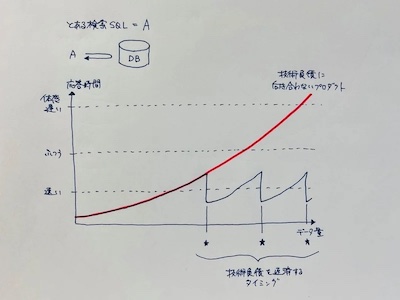 とある検索SQL = A
A
DB
応答時間
体感
遅い
ふつう
速い
技術負債に
向き合わないプロダクト
データ量
* * *
技術負債を返済する
タイミング